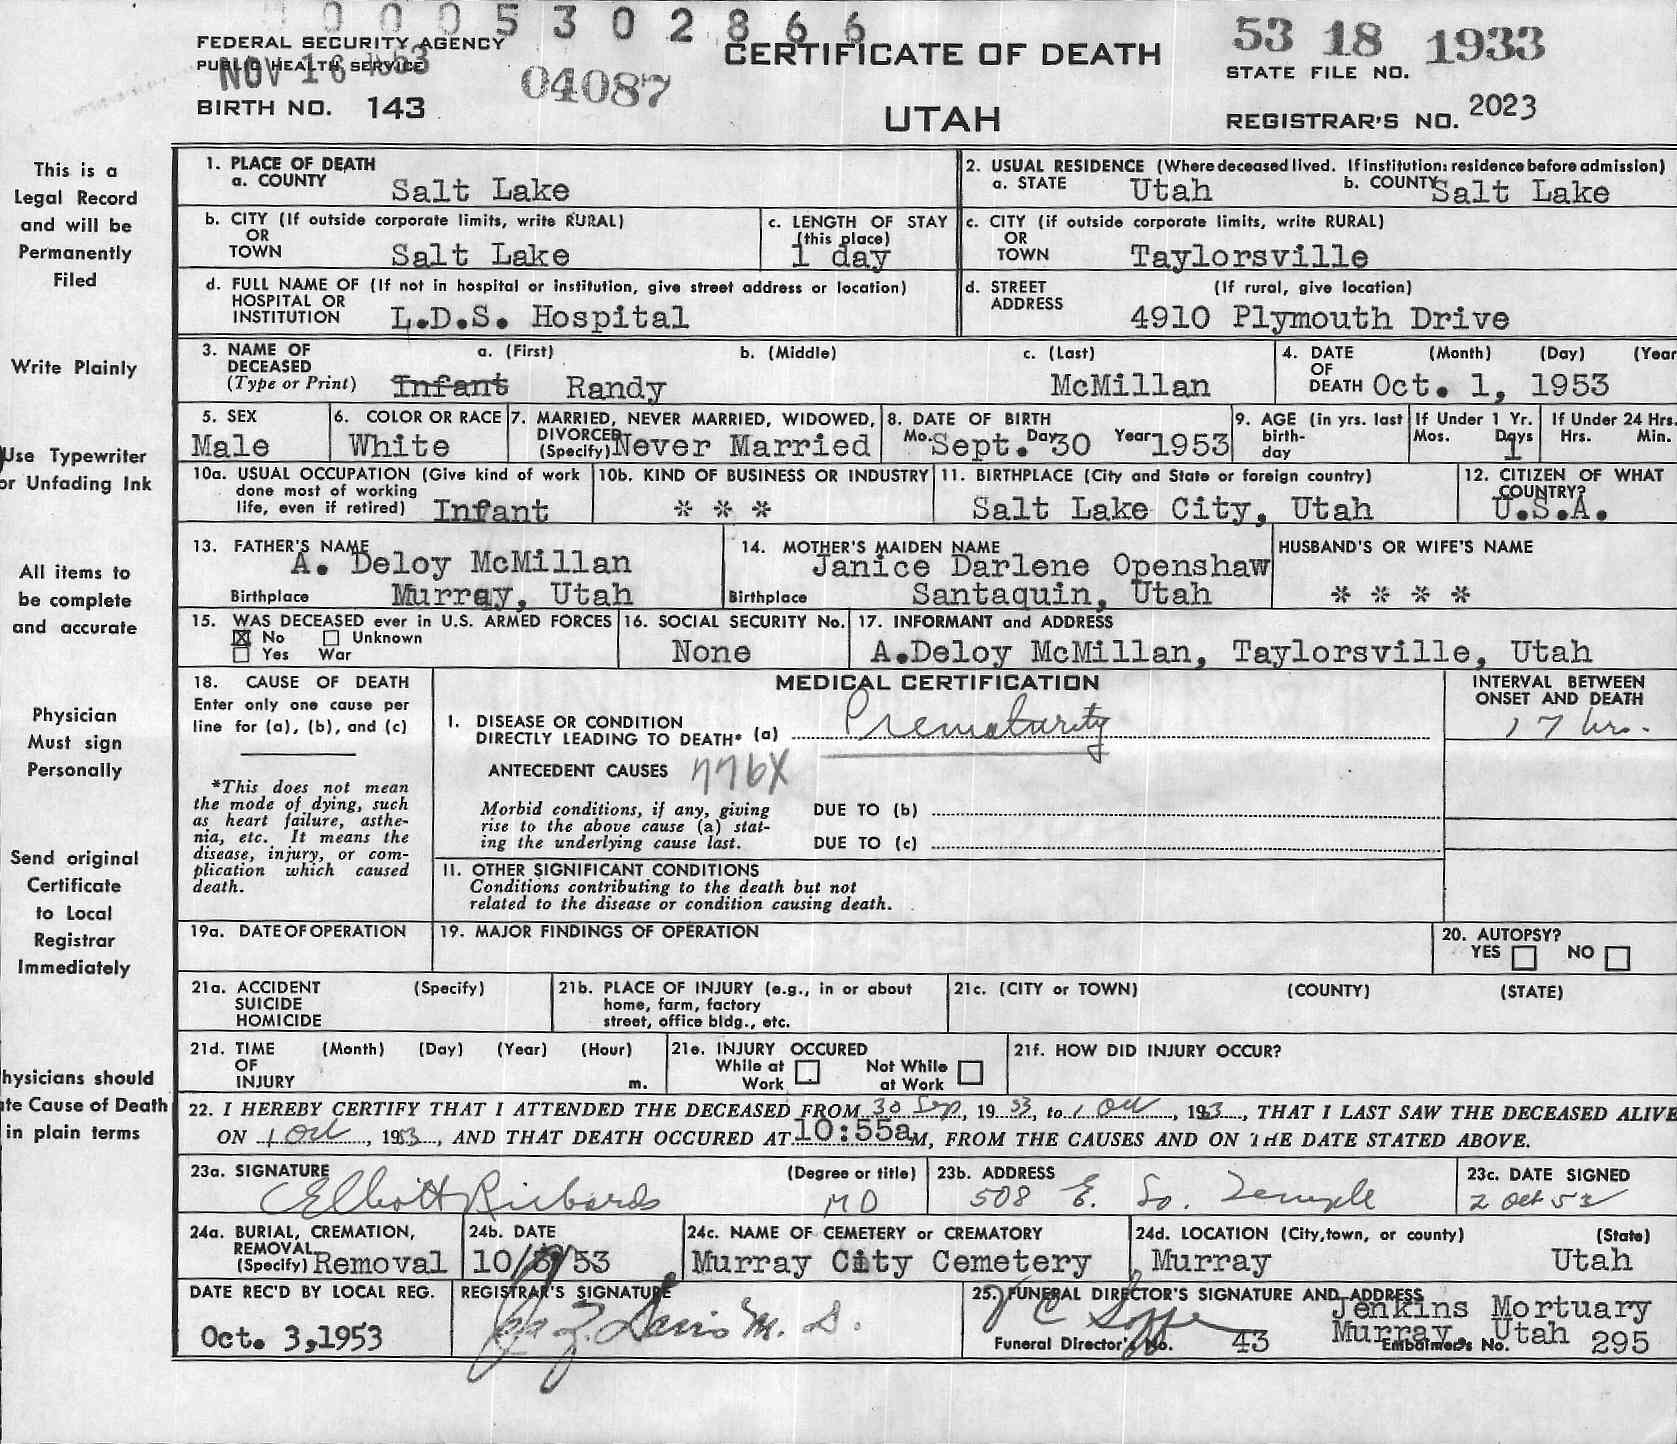 0 0 0 5 3 0 2 8 6 6
FEDERAL SECURITY AGENCY
PUBLIC HEALTH SERVICE
NOV 16 1953
BIRTH NO. 143
04087
CERTIFICATE OF DEATH
UTAH
53 18 1933
STATE FILE NO.
REGISTRAR'S NO. 2023
This is a
Legal Record
and will be
Permanently
Filed
Write Plainly
Use Typewriter
or Unfading Ink
All items to
be complete
and accurate
Physician
Must sign
Personally
Send original
Certificate
to Local
Registrar
Immediately
hysicians should
te Cause of Death
in plain terms
1. PLACE OF DEATH
a. COUNTY Salt Lake
2. USUAL RESIDENCE (Where deceased lived. If institution: residence before admission)
a. STATE Utah b. COUNTY Salt Lake
b. CITY (If outside corporate limits, write RURAL)
OR
TOWN Salt Lake
c. LENGTH OF STAY
(this place)
1 day
c. CITY (if outside corporate limits, write RURAL)
OR
TOWN Taylorsville
d. FULL NAME OF (If not in hospital or institution, give street address or location)
HOSPITAL OR
INSTITUTION L.D.S. Hospital
d. STREET (If rural, give location)
ADDRESS
4910 Plymouth Drive
3. NAME OF a. (First) b. (Middle) c. (Last)
DECEASED
(Type or Print) Infant Randy McMillan
4. DATE (Month) (Day) (Year
OF
DEATH Oct. 1, 1953
5. SEX
Male
6. COLOR OR RACE
White
7. MARRIED, NEVER MARRIED, WIDOWED,
DIVORCED
(Specify) Never Married
8. DATE OF BIRTH
Mo. Sept. Day 30 Year 1953
9. AGE (in yrs. last
birth-
day
If Under 1 Yr.
Mos. Days
1
If Under 24 Hrs.
Hrs. Min.
10a. USUAL OCCUPATION (Give kind of work
done most of working
life, even if retired) Infant
10b. KIND OF BUSINESS OR INDUSTRY
* * *
11. BIRTHPLACE (City and State or foreign country)
Salt Lake City, Utah
12. CITIZEN OF WHAT
COUNTRY?
U.S.A.
13. FATHER'S NAME
A. Deloy McMillan
Birthplace Murray, Utah
14. MOTHER'S MAIDEN NAME
Janice Darlene Openshaw
Birthplace Santaquin, Utah
HUSBAND'S OR WIFE'S NAME
* * * *
15. WAS DECEASED ever in U.S. ARMED FORCES
No Unknown
Yes War
16. SOCIAL SECURITY No.
None
17. INFORMANT and ADDRESS
A.Deloy McMillan, Taylorsville, Utah
18. CAUSE OF DEATH
Enter only one cause per
line for (a), (b), and (c)
*This does not mean
the mode of dying, such
as heart failure, asthe-
nia, etc. It means the
disease, injury, or com-
plication which caused
death.
MEDICAL CERTIFICATION
I. DISEASE OR CONDITION
DIRECTLY LEADING TO DEATH* (a) Prematurity
ANTECEDENT CAUSES 776X
Morbid conditions, if any, giving
rise to the above cause (a) stat-
ing the underlying cause last.
DUE TO (b)
DUE TO (c)
II. OTHER SIGNIFICANT CONDITIONS
Conditions contributing to the death but not
related to the disease or condition causing death.
INTERVAL BETWEEN
ONSET AND DEATH
17 hrs.
19a. DATE OF OPERATION
19. MAJOR FINDINGS OF OPERATION
20. AUTOPSY?
YES NO
21a. ACCIDENT (Specify)
SUICIDE
HOMICIDE
21b. PLACE OF INJURY (e.g., in or about
home, farm, factory
street, office bldg., etc.
21c. (CITY or TOWN) (COUNTY) (STATE)
21d. TIME (Month) (Day) (Year) (Hour)
OF
INJURY m.
21e. INJURY OCCURED
While at Work
Not While at Work
21f. HOW DID INJURY OCCUR?
22. I HEREBY CERTIFY THAT I ATTENDED THE DECEASED FROM 30 Sep, 19 53, to 1 Oct, 1953, THAT I LAST SAW THE DECEASED ALIVE
ON 1 Oct, 1953, AND THAT DEATH OCCURED AT 10:55a M, FROM THE CAUSES AND ON THE DATE STATED ABOVE.
23a. SIGNATURE (Degree or title)
Elliott Richards MD
23b. ADDRESS
508 E. So. Temple
23c. DATE SIGNED
2 Oct 53
24a. BURIAL, CREMATION,
REMOVAL
(Specify) Removal
24b. DATE
10/3/53
24c. NAME OF CEMETERY or CREMATORY
Murray City Cemetery
24d. LOCATION (City, town, or county) (State)
Murray Utah
DATE REC'D BY LOCAL REG.
Oct. 3,1953
REGISTRAR'S SIGNATURE
Davis M. D.
25. FUNERAL DIRECTOR'S SIGNATURE AND ADDRESS
Jenkins Mortuary
Murray, Utah
Funeral Director's No. 43 Embalmer's No. 295